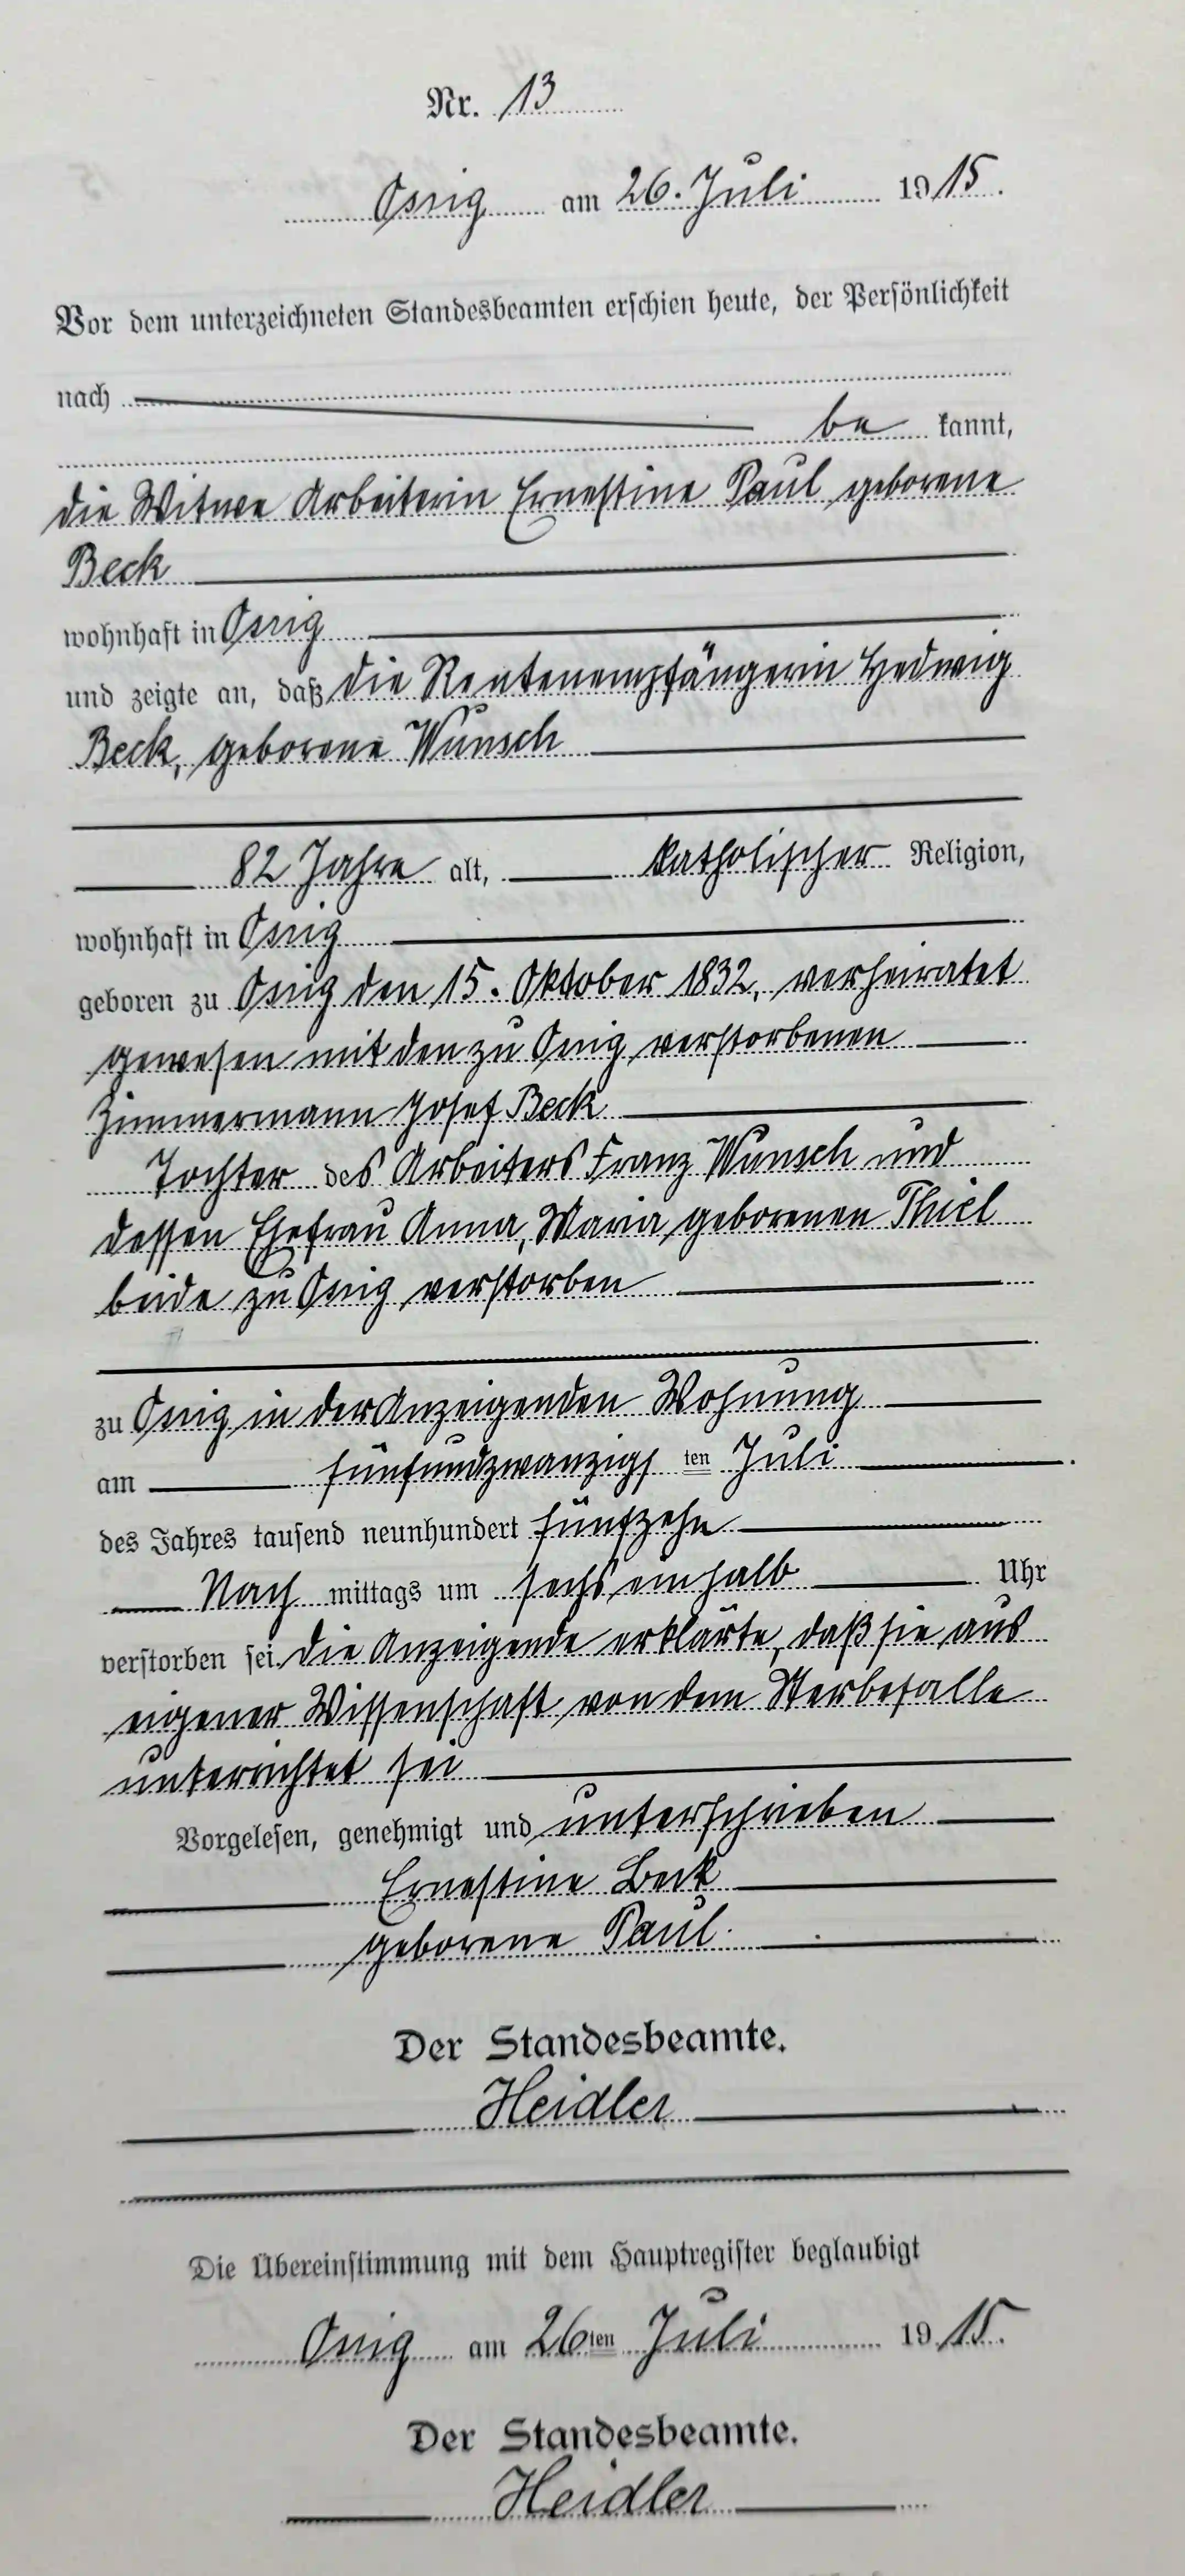 Nr. 13
Ossig am 26. Juli 1915.
Vor dem unterzeichneten Standesbeamten erschien heute, der Persönlichkeit
nach
be kannt,
die Witwe Arbeiterin Ernestine Paul geborene
Beck
wohnhaft in Ossig
und zeigte an, daß die Rentenempfängerin Hedwig
Beck, geborene Wunsch
82 Jahre alt, katholischer Religion,
wohnhaft in Ossig
geboren zu Ossig den 15. Oktober 1832, verheiratet
gewesen mit den zu Ossig verstorbenen
Zimmermann Josef Beck
Tochter des Arbeiters Franz Wunsch und
dessen Ehefrau Anna, Maria geborenen Thiel
beide zu Ossig verstorben
zu Ossig in der Anzeigenden Wohnung
am fünfundzwanzigs ten Juli
des Jahres tausend neunhundert fünfzehn
Nach mittags um sechs einhalb Uhr
verstorben sei. Die Anzeigende erklärte, daß sie aus
eigener Wissenschaft von dem Sterbefalle
unterrichtet sei
Vorgelesen, genehmigt und unterschrieben
Ernestine Beck
geborene Paul.
Der Standesbeamte.
Heidler
Die Übereinstimmung mit dem Hauptregister beglaubigt
Ossig am 26ten Juli 1915.
Der Standesbeamte.
Heidler